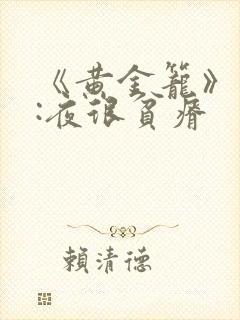 《黄金籠》
:夜很貧瘠
賴清德